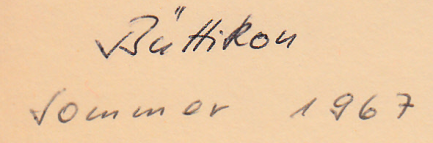 Büttikon
Sommer 1967